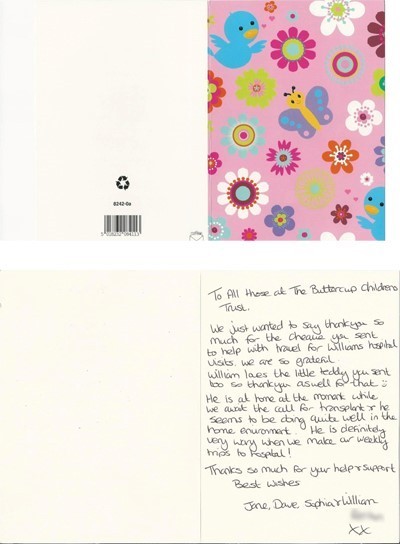 8242-0a
To All those at The Buttercup Childrens
Trust.
We just wanted to say thankyou so
much for the cheque you sent
to help with travel for Williams hospital
visits. we are so grateful.
William loves the little teddy you sent
too so thankyou aswell for that :)
He is at home at the moment while
we await the call for transplant & he
seems to be doing quite well in the
home environment. He is definitely
very wary when we make our weekly
trips to hospital!
Thanks so much for your help & support
Best wishes
Jane, Dave, Sophia & William
xx